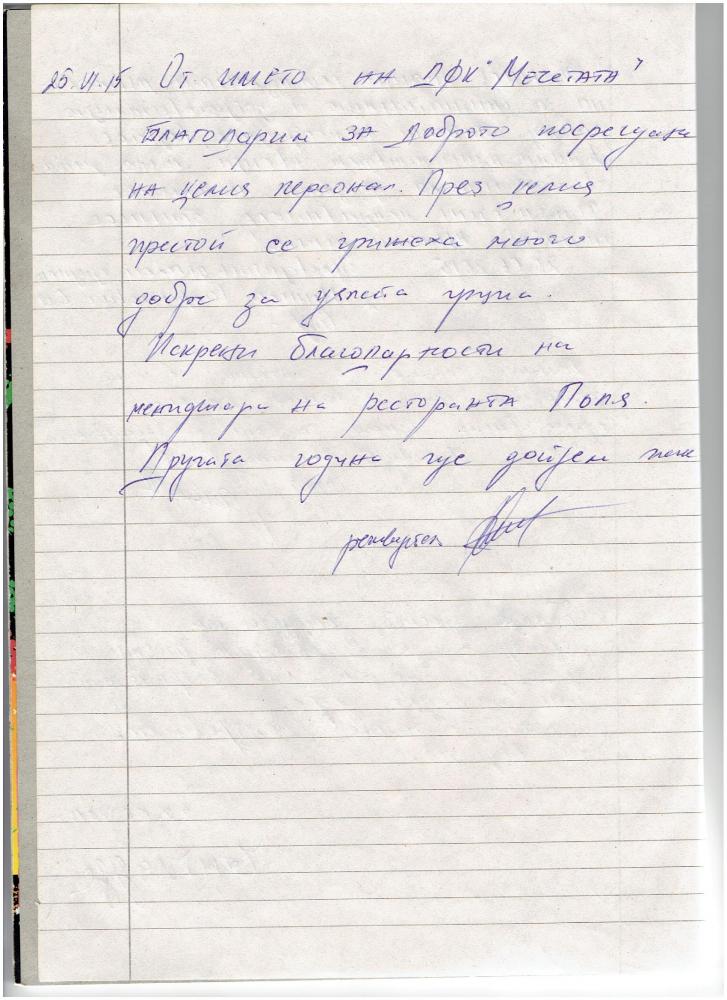 25.VI.15 От името на ДФК "Мечетата"
Благодарим за доброто посрещане
на целия персонал. През целия
престой се грижеха много
добре за цялата група.
Искрени благодарности на
мениджъра на ресторанта Поля.
Другата година ще дойдем пак